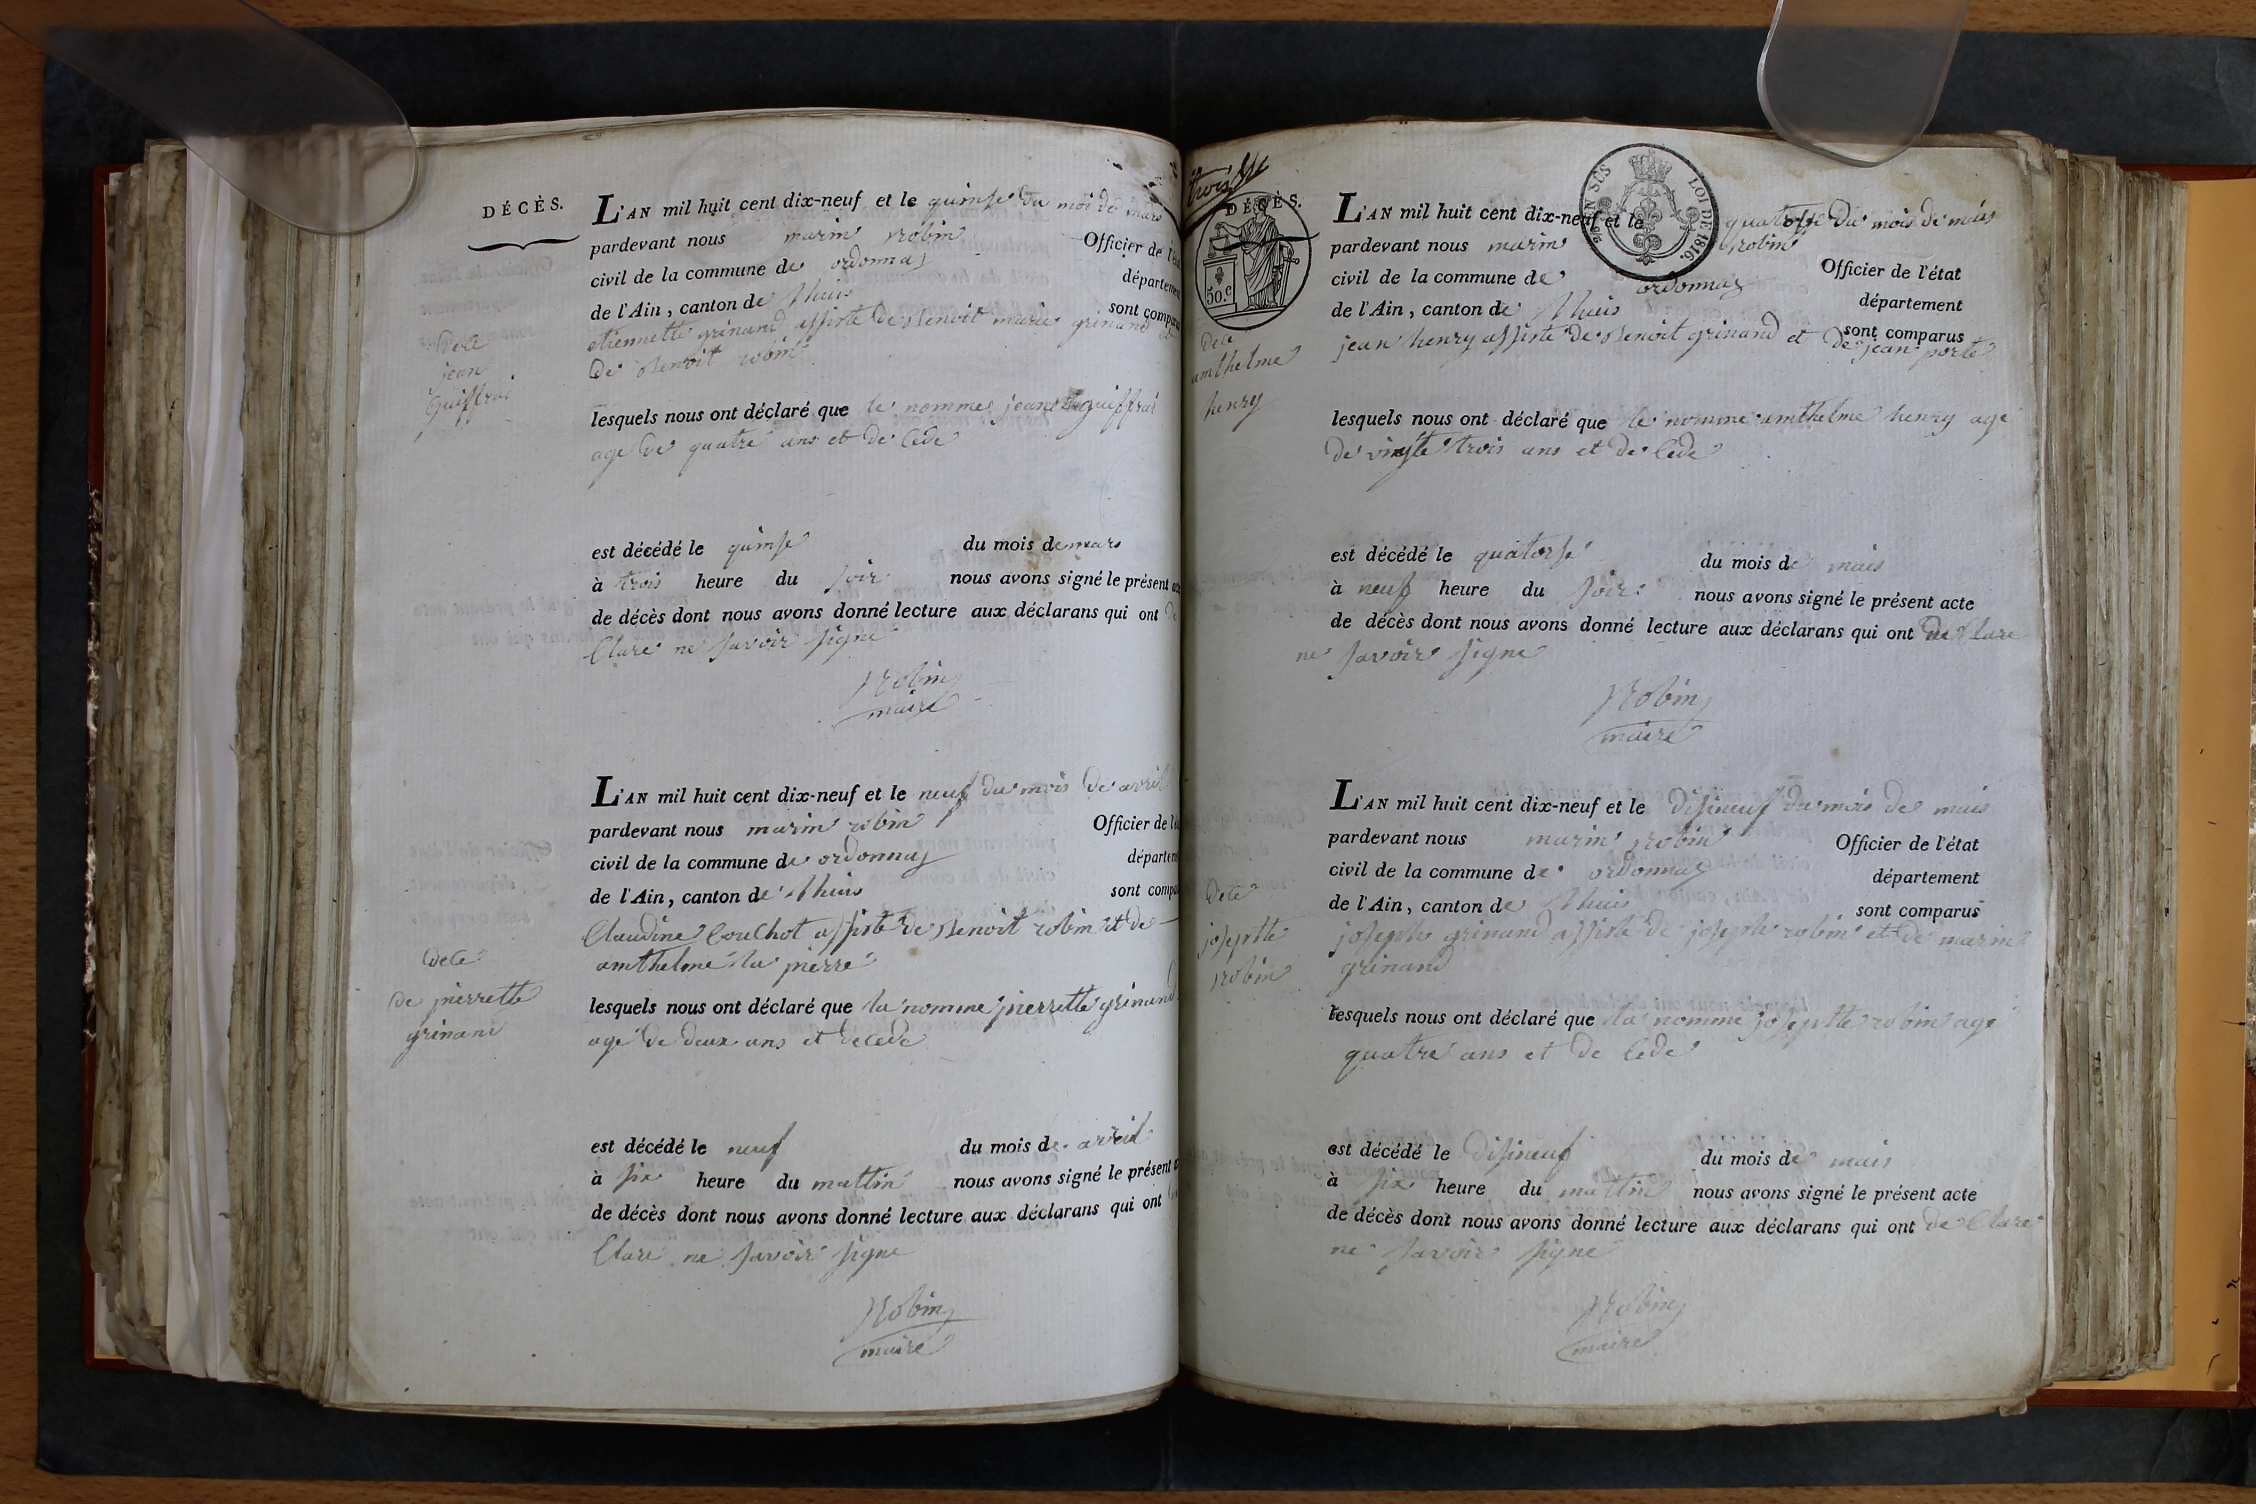 DÉCÈS.
L'AN mil huit cent dix-neuf et le quinse du moi de mars
pardevant nous marin robin Officier de l'éta
civil de la commune de ordonnas département
de l'Ain, canton de lhuis sont compar
etiennette grinand assisté de Benoit marie grinand
de Benoit robin
dece
jean
Guiffrai
lesquels nous ont déclaré que le nomme jean guiffrai
age de quatre ans et de cede
est décédé le quinse du mois de mars
à trois heure du soir nous avons signé le présent ac
de décès dont nous avons donné lecture aux déclarans qui ont de
Clare ne savoir signe
Robin
maire
L'AN mil huit cent dix-neuf et le neuf du mois de avril
pardevant nous marin robin Officier de l'
civil de la commune de ordonnas départem
de l'Ain, canton de lhuis sont compa
Claudine Couchot assisté de Benoit robin et de
amthelme la pierre
dece
de pierrette
grinand
lesquels nous ont déclaré que la nomme pierrette grinand
age de deux ans et decede
est décédé le neuf du mois de avril
à six heure du mattin nous avons signé le présent a
de décès dont nous avons donné lecture aux déclarans qui ont
Clare ne savoir signe
Robin
maire
trois
DÉCÈS.
50.c
EN SUS
LOI DE 1816.
L'AN mil huit cent dix-neuf et le quatorse du mois de mais
pardevant nous marin robin Officier de l'état
civil de la commune de ordonnas département
de l'Ain, canton de lhuis sont comparus
jean henry assisté de Benoit grinand et de jean porte
dece
amthelme
henry
lesquels nous ont déclaré que le nomme amthelme henry age
de vingte trois ans et de cede
est décédé le quatorse du mois de mais
à neuf heure du soir nous avons signé le présent acte
de décès dont nous avons donné lecture aux déclarans qui ont de Clare
ne savoir signe
Robin
maire
L'AN mil huit cent dix-neuf et le disineuf du mois de mais
pardevant nous marin robin Officier de l'état
civil de la commune de ordonnas département
de l'Ain, canton de lhuis sont comparus
joseph grinand assisté de joseph robin et de marin
grinand
dece
josepthe
robin
lesquels nous ont déclaré que la nomme josepthe robin age
quatre ans et de cede
est décédé le disineuf du mois de mais
à six heure du mattin nous avons signé le présent acte
de décès dont nous avons donné lecture aux déclarans qui ont de Clare
ne savoir signe
Robin
maire